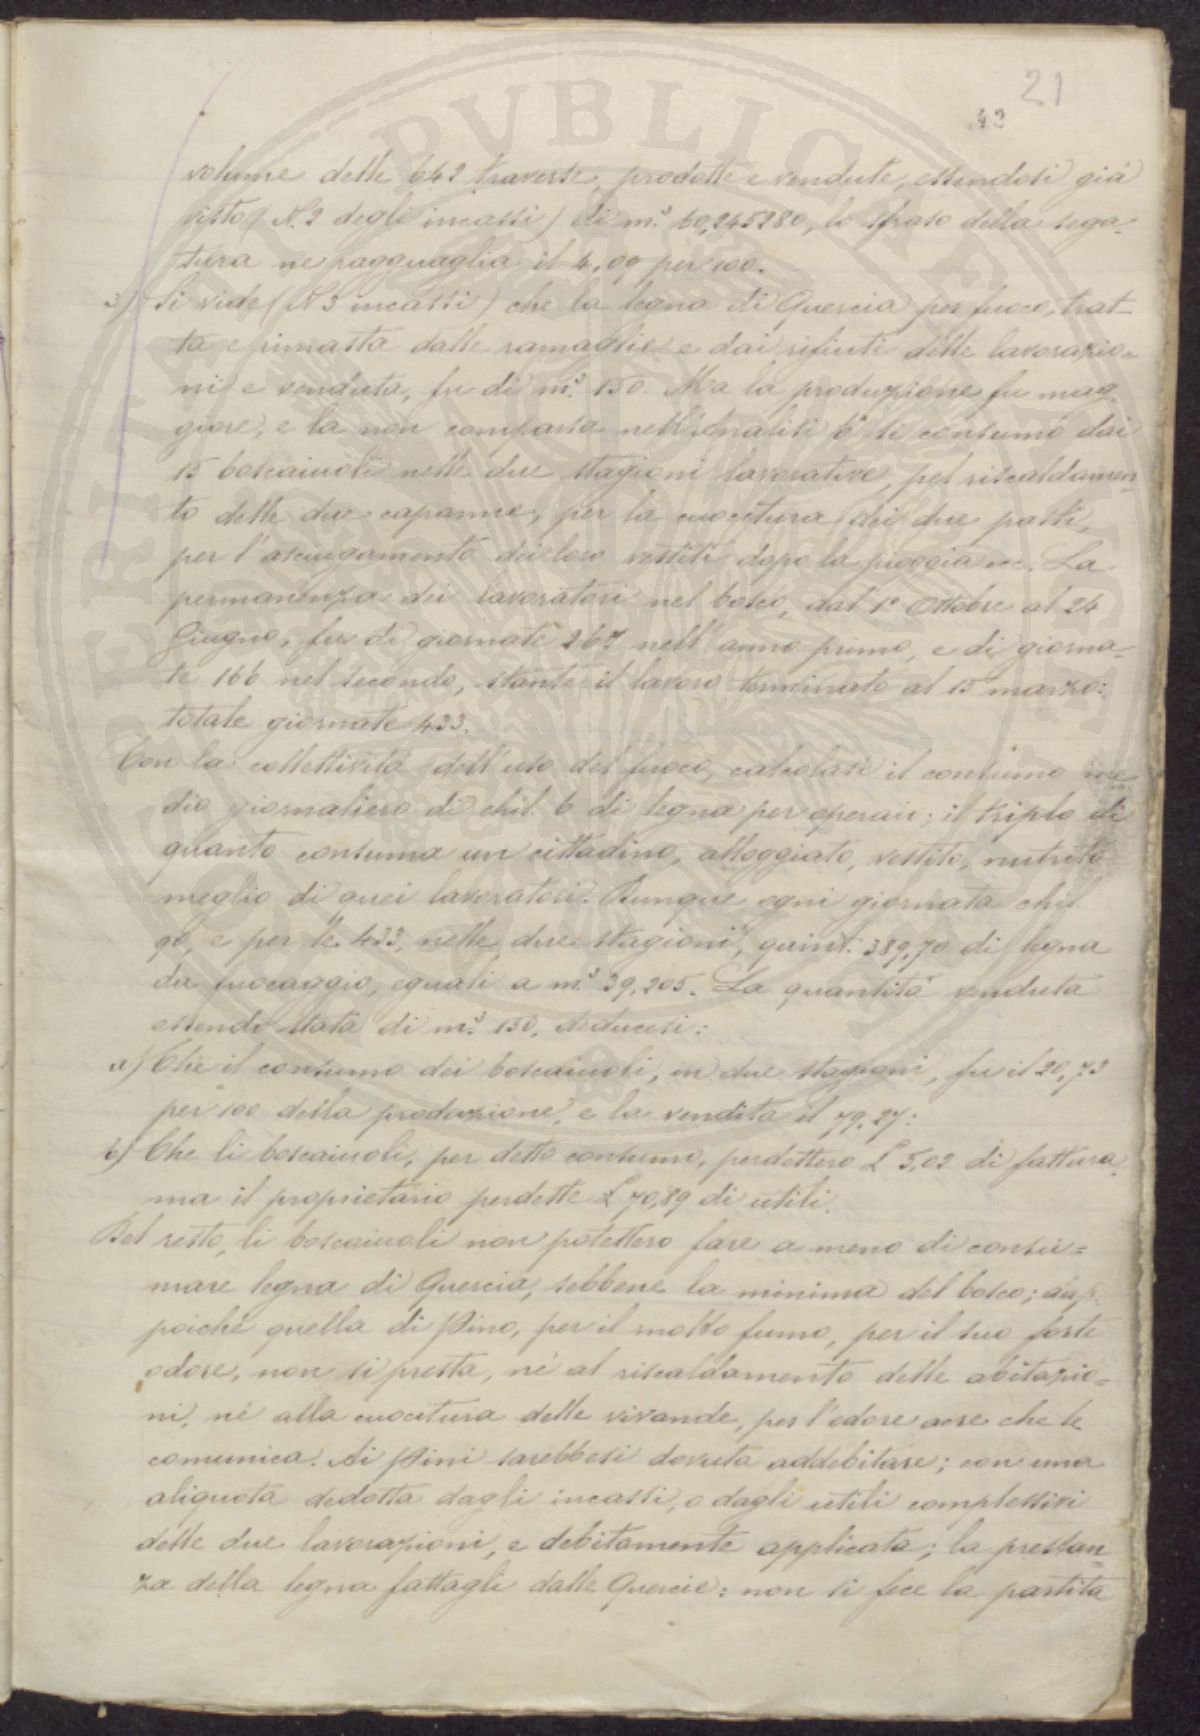 21
42
volume delle 642 traverse, prodotte e vendute, essendosi già
visto (N. 2 degli incassi) di m.³ 60,245280, lo sfraso della sega-
tura ne ragguaglia il 4,09 per 100.
3) Si vide (N 3 incassi) che la legna di Quercia per fuoco, trat-
ta e rimasta dalle ramaglie e dai rifiuti delle lavorazio-
ni e venduta, fu di m.³ 150. Ma la produzione fu mag-
giore, e la non comparsa nell'Analisi 6ª si consumò dai
15 boscaiuoli nelle due stagioni lavorative, pel riscaldamen-
to delle due capanne, per la cuocitura dei due pasti,
per l'asciugamento dei loro vestiti dopo la pioggia ecc. La
permanenza dei lavoratori nel bosco, dal 1° Ottobre al 24
Giugno, fu di giornate 267 nell'anno primo, e di giorna-
te 166 nel secondo, stante il lavoro terminato al 15 marzo:
totale giornate 433.
Con la collettività dell'uso del fuoco, calcolasi il consumo me
dio giornaliero di chil. 6 di legna per operaio; il triplo di
quanto consuma un cittadino, alloggiato, vestito, nutrito
meglio di quei lavoratori. Dunque ogni giornata chil.
90, e per le 433, nelle due stagioni, quint. 389,70 di legna
da fuocaggio, eguali a m.³ 39,205. La quantità venduta
essendo stata di m.³ 150, deducesi:
a) Che il consumo dei boscaiuoli, in due stagioni, fu il 20,73
per 100 della produzione, e la vendita il 79,27:
b) Che li boscaiuoli, per detto consumo, perdettero £ 5,02 di fattura,
ma il proprietario perdette £ 70,89 di utili.
Del resto, li boscaiuoli non potettero fare a meno di consu-
mare legna di Quercia, sebbene la minima del bosco; dap-
poiché quella di Pino, per il molto fumo, per il suo forte
odore, non si presta, né al riscaldamento delle abitazio-
ni, né alla cuocitura delle vivande, per l'odore acre che le
comunica. Ai Pini sarebbesi dovuta addebitare; con una
aliquota dedotta dagli incassi, o dagli utili complessivi
delle due lavorazioni, e debitamente applicata; la prestan-
za della legna fattagli dalle Quercie: non si fece la partita